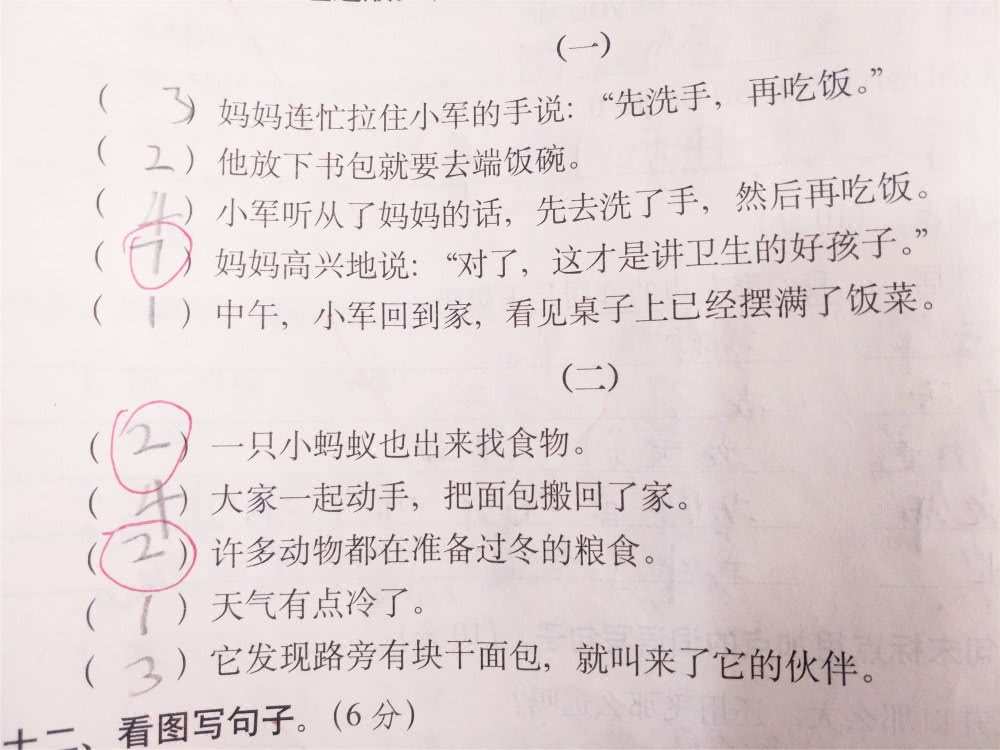 （一）
（ 3 ）妈妈连忙拉住小军的手说：“先洗手，再吃饭。”
（ 2 ）他放下书包就要去端饭碗。
（ 4 ）小军听从了妈妈的话，先去洗了手，然后再吃饭。
（ 7 ）妈妈高兴地说：“对了，这才是讲卫生的好孩子。”
（ 1 ）中午，小军回到家，看见桌子上已经摆满了饭菜。
（二）
（ 2 ）一只小蚂蚁也出来找食物。
（ 4 ）大家一起动手，把面包搬回了家。
（ 2 ）许多动物都在准备过冬的粮食。
（ 1 ）天气有点冷了。
（ 3 ）它发现路旁有块干面包，就叫来了它的伙伴。
十二、看图写句子。（6分）